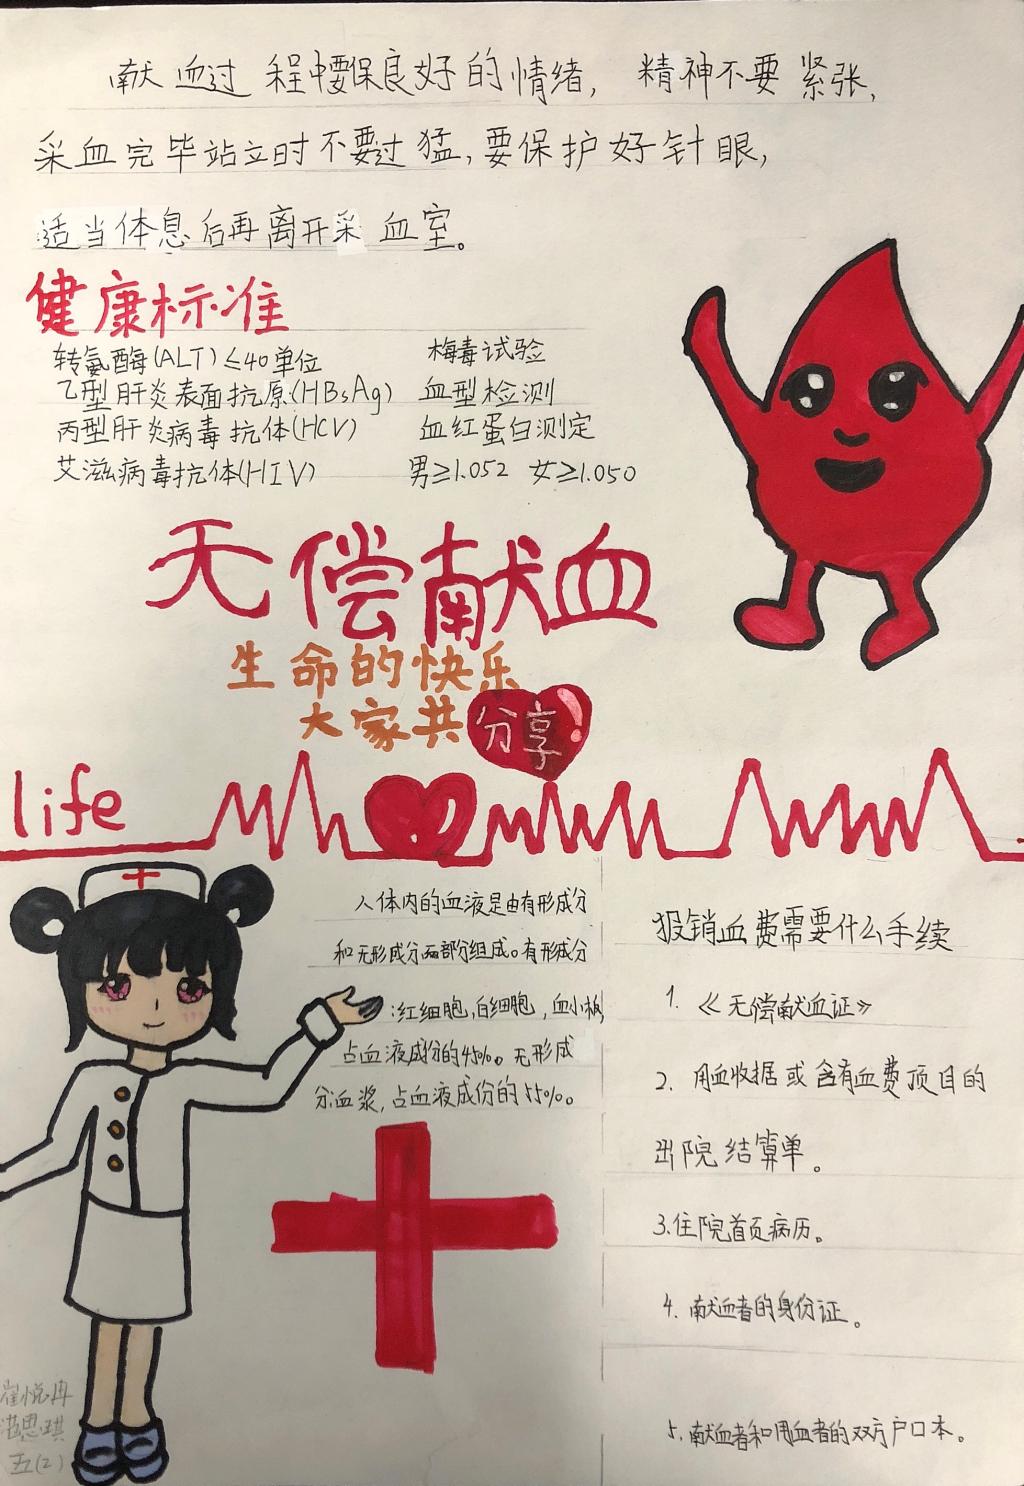 献血过程中要保良好的情绪，精神不要紧张，
采血完毕站立时不要过猛，要保护好针眼，
适当体息后再离开采血室。
健康标准
转氨酶(ALT)≤40单位 梅毒试验
乙型肝炎表面抗原(HBsAg) 血型检测
丙型肝炎病毒抗体(HCV) 血红蛋白测定
艾滋病毒抗体(HIV) 男≥1.052 女≥1.050
无偿献血
生命的快乐
大家共分享
life
人体内的血液是由有形成分
和无形成分两部分组成。有形成分
:红细胞,白细胞,血小板
占血液成份的45%。无形成
分:血浆,占血液成份的55%。
报销血费需要什么手续
1.《无偿献血证》
2.用血收据或含有血费项目的
出院结算单。
3.住院首页病历。
4.献血者的身份证。
5.献血者和用血者的双方户口本。
崔悦冉
思琪
五(2)